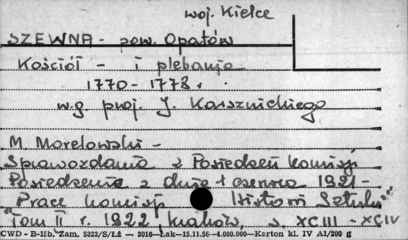 woj. Kielce
SZEWNA - pow. Opatów
Kościół - i plebania
1770 - 1778.
w.g. proj. J. Karsznickiego
M. Morelowski -
Sprawozdania z Posiedzeń Komisji
Posiedzenie z dnia 1 czerwca 1921 -
"Prace Komisji Historii Sztuki"
Tom II r. 1922, Kraków, s. XCIII - XCIV
CWD - B-15b, Zam. 5323/S/ŁŻ - 3016 - Łak - 15.11.56 - 4.000.000 - Karton kl. IV A1/200 g